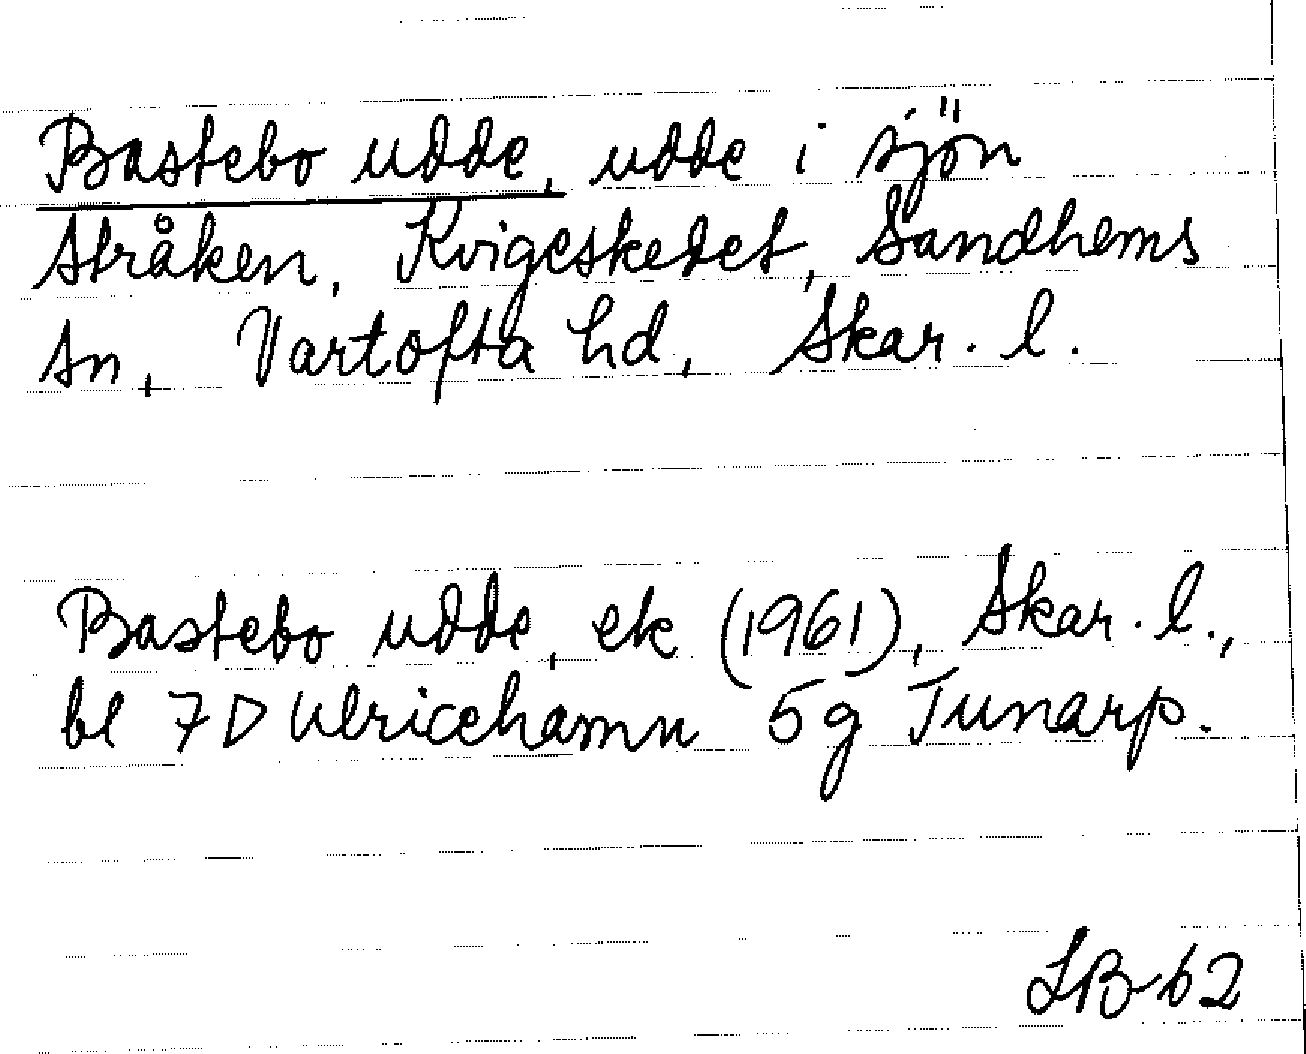 Bastebo udde, udde i sjön
Stråken, Kvigeskedet, Sandhems
sn, Vartofta hd, Skar. l.
Bastebo udde, ek (1961), Skar. l.,
bl 7D Ulricehamn 5g Tunarp.
LB-62